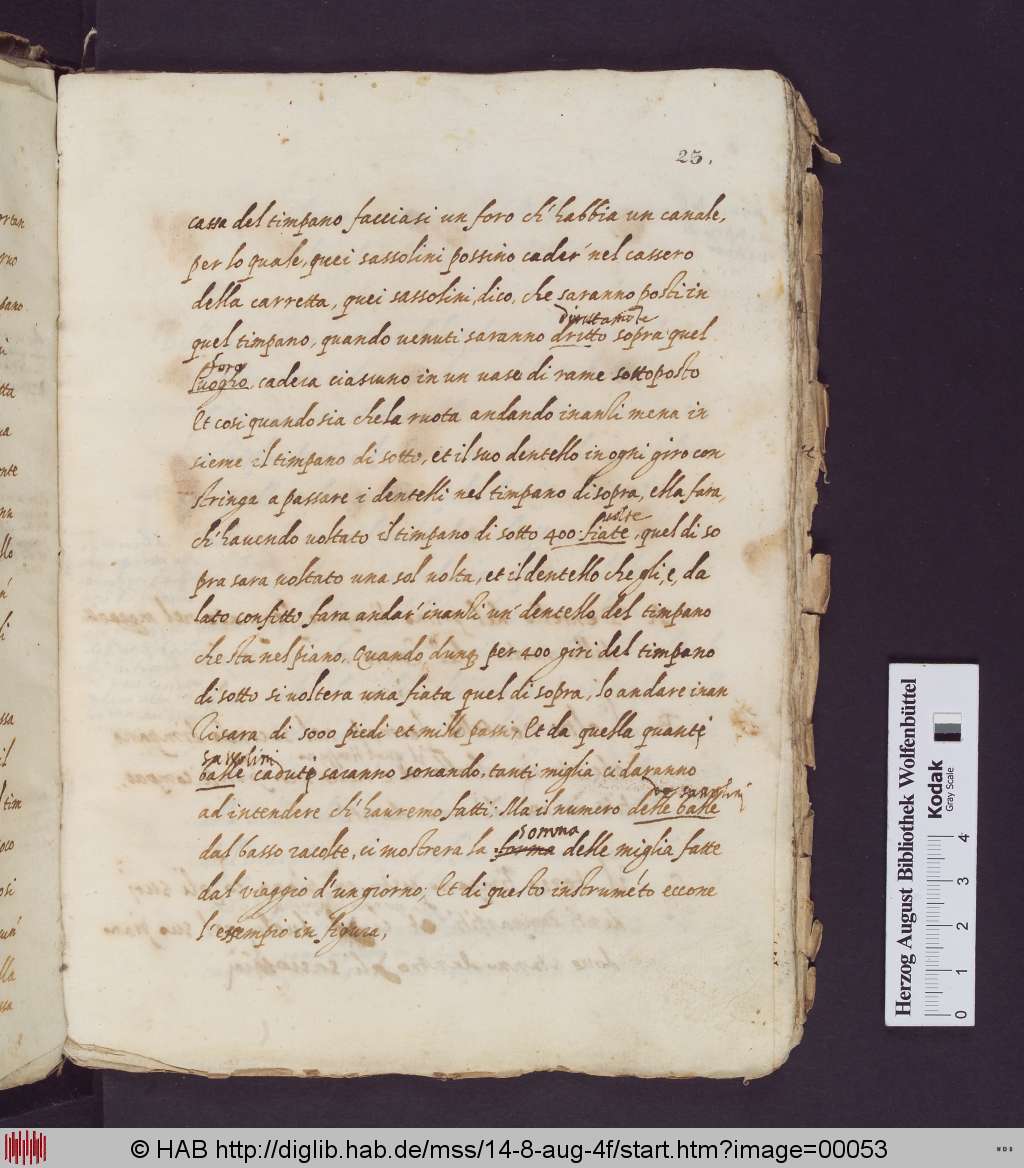 23.
cassa del timpano facciasi un foro ch'habbia un canale,
per lo quale, quei sassolini possino cader' nel cassero
della carretta, quei sassolini, dico, che saranno posti in
quel timpano, quando venuti saranno dritto sopra quel
foro
luogho, cadera ciascuno in un vase di rame sottoposto
Et cosi quando sia che la ruota andando inanti mena in
sieme il timpano di sotto, et il suo dentello in ogni giro con
stringa a passare i dentelli nel timpano di sopra, ella fara,
volte
ch'havendo voltato il timpano di sotto 400 fiate, quel di so
pra sara voltato una sol volta, et il dentello che gli, e, da
lato confitto fara andar' inanti un' dentello del timpano
che sta nel piano. Quando dunq per 400 giri del timpano
di sotto si voltera una fiata quel di sopra, lo andare inan
ti sara di 5000 piedi et mille passi, Et da quella quanti
sassolini
balle caduti saranno sonando, tanti miglia ci daranno
ad intendere ch'hauremo fatti; Ma il numero delle balle
somma
dal basso racolte, ci mostrera la forma delle miglia fatte
dal viaggio d'un giorno; Et di questo instruméto eccone
l'esempio in figura,
Herzog August Bibliothek Wolfenbüttel
Kodak
Gray Scale
0 1 2 3 4
© HAB http://diglib.hab.de/mss/14-8-aug-4f/start.htm?image=00053